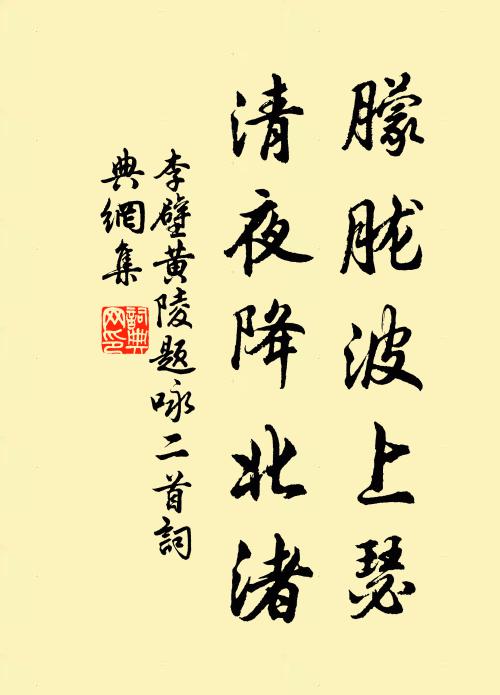 朦胧波上瑟
清夜降北渚
李壁黄陵题咏二首詞
典網集
詞典
网印